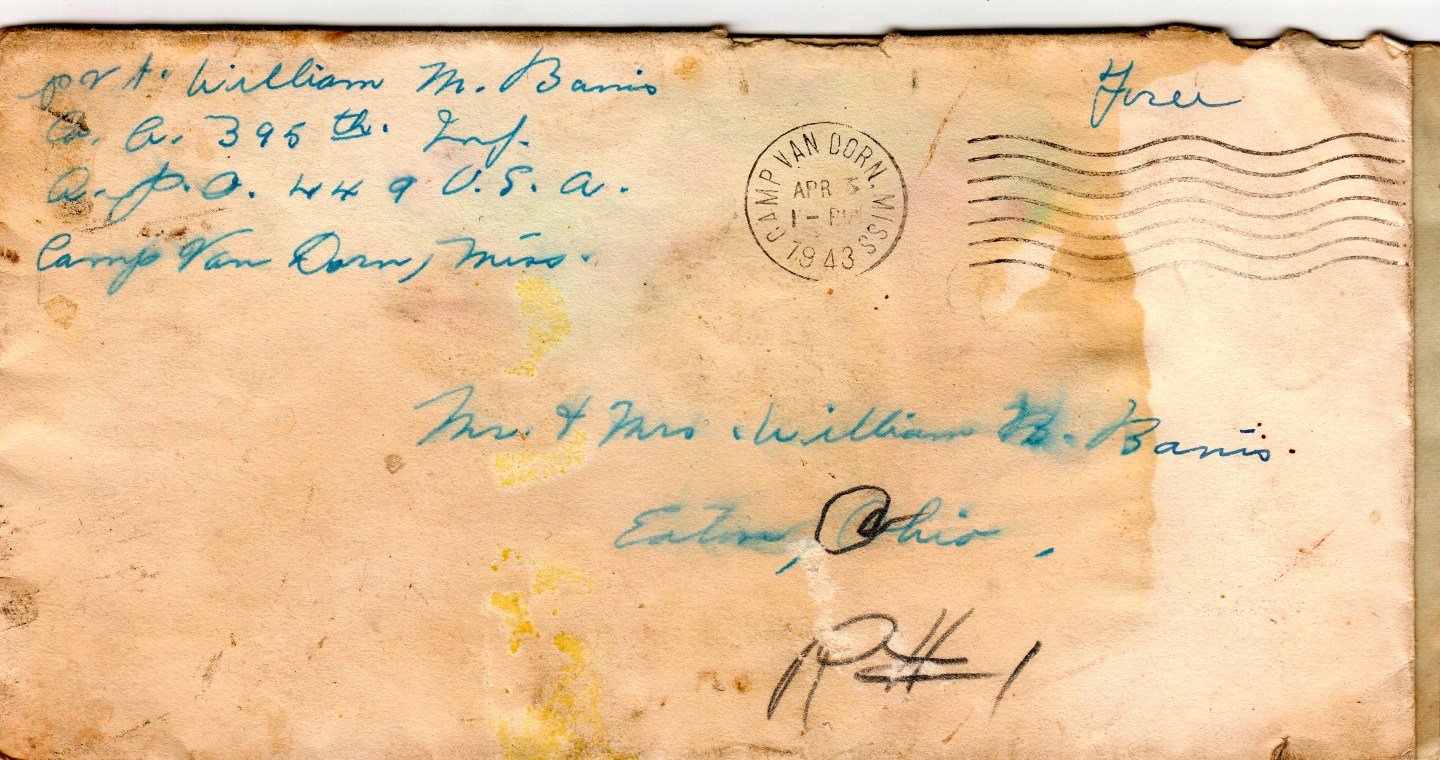 pvt. William M. Banis
Co. A. 395 th. Inf.
A.P.O. 449 U.S.A.
Camp Van Dorn, Miss.
Free
CAMP VAN DORN, MISS
APR 3
1 - PM
1943
Mr. & Mrs William B. Banis.
Eaton, Ohio,
R # 1